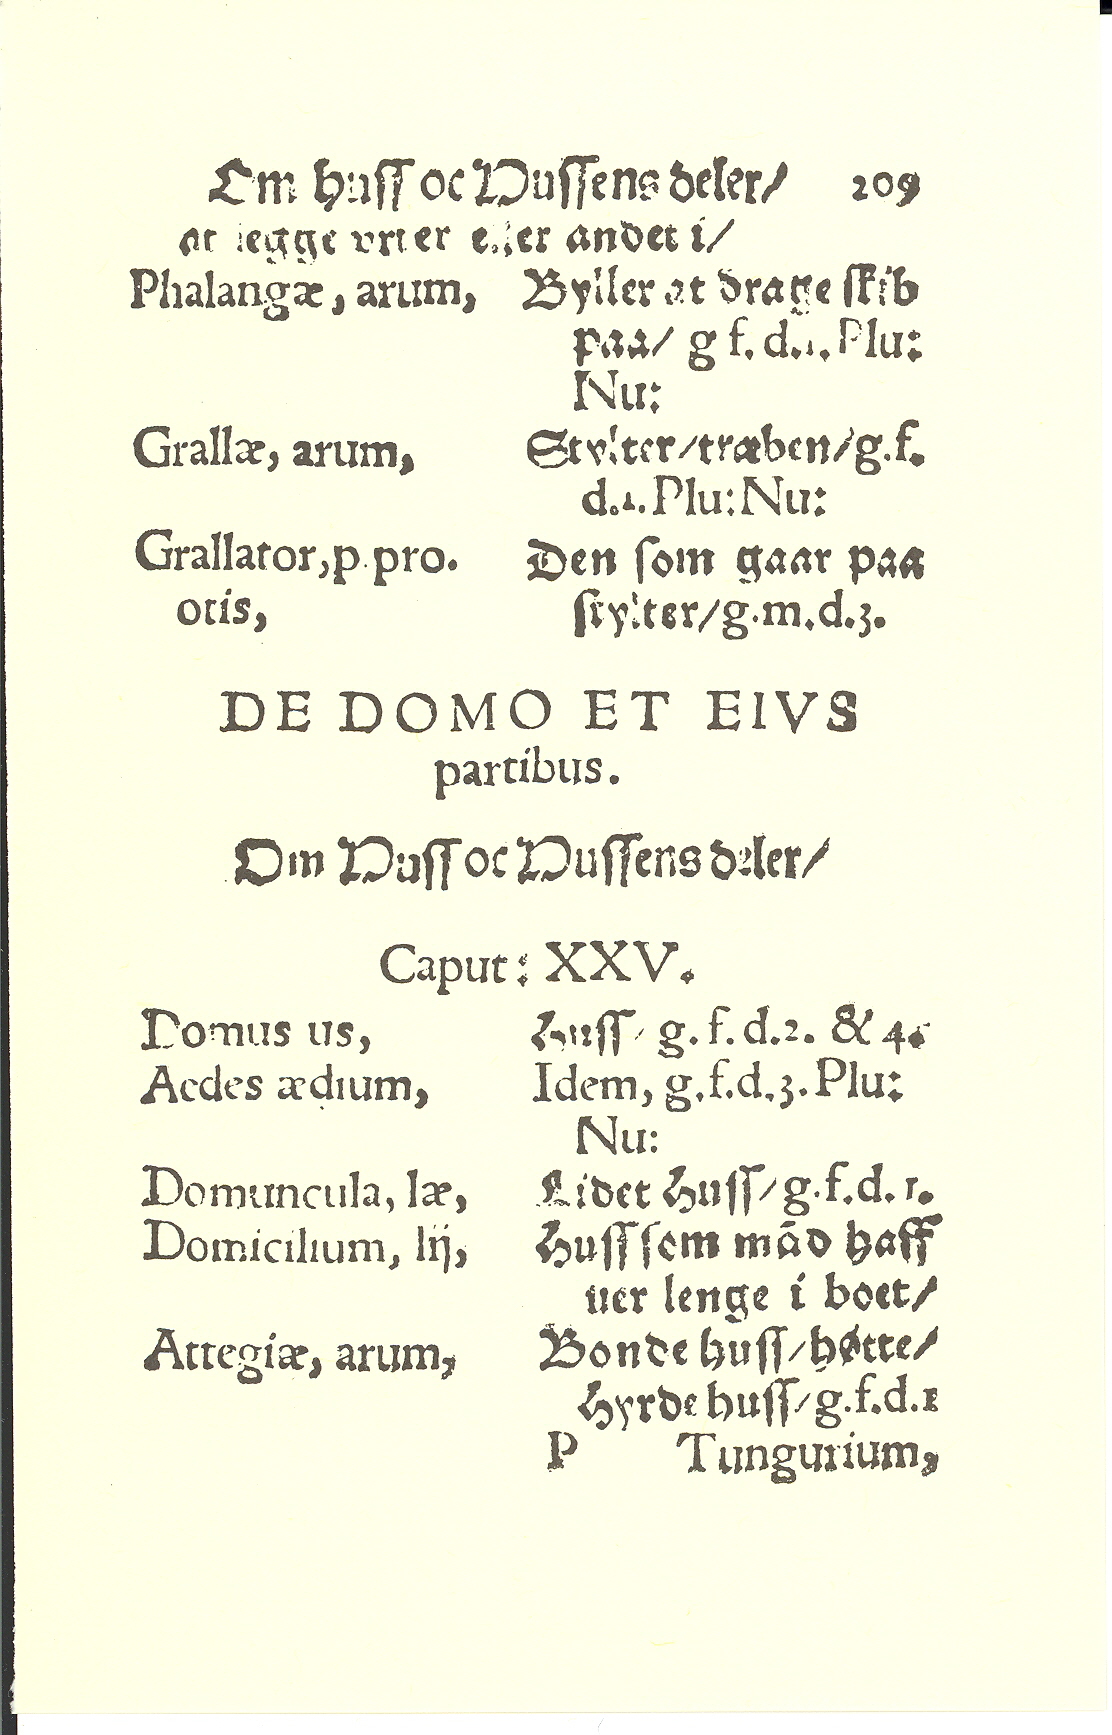 Om huſſ oc Huſſens deler/ 209
at legge vrter eller andet i/
Phalangæ, arum, Byller at drage ſkib
paa/ g f. d.1. Plu:
Nu:
Grallæ, arum, Stylter/træben/g.f.
d.1. Plu: Nu:
Grallator, p. pro. Den ſom gaar paa
otis, ſtylter/g.m.d.3.
DE DOMO ET EIVS
partibus.
Om Huſſ oc Huſſens deler/
Caput: XXV.
Domus us, Huſſ/ g. f. d.2. & 4.
Aedes ædium, Idem, g.f.d.3. Plu:
Nu:
Domuncula, læ, Lidet Huſſ/g.f.d.1.
Domicilium, lij, Huſſ ſom mād haff
uer lenge i boet/
Attegiæ, arum, Bonde huſſ/høtte/
Hyrde huſſ/g.f.d.1
P Tungurium,